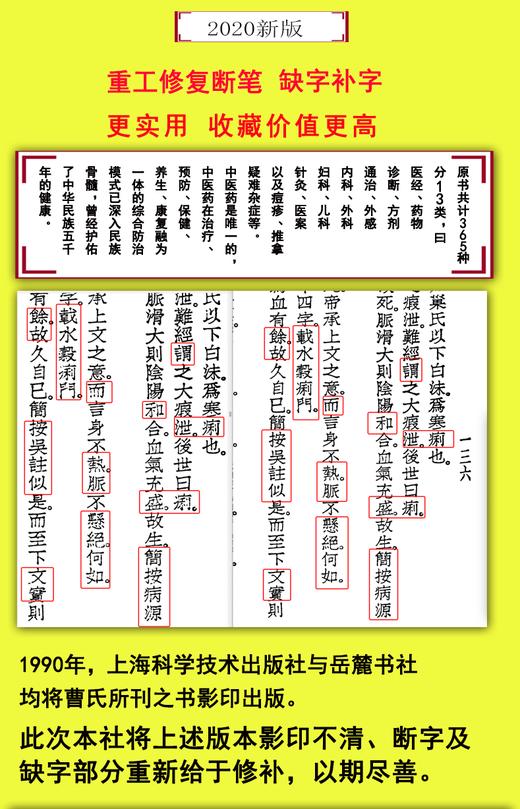 2020新版
重工修复断笔 缺字补字
更实用 收藏价值更高
原书共计365种
分13类，曰
医经、药物
诊断、方剂
通治、外感
内科、外科
妇科、儿科
针灸、医案
以及痘疹、推拿
疑难杂症等。
中医药是唯一的，
中医药在治疗、
预防、保健、
养生、康复融为
一体的综合防治
模式已深入民族
骨髓，曾经护佑
了中华民族五千
年的健康。
一三六
氏以下白沫爲寒痢也。
泄難經謂之大瘕泄。後世曰痢。
死脈滑大則陰陽和合血氣充盛。故生。簡按病源
帝承上文之意。而言身不熱。脈不懸絕。何如。
四字。載水穀痢門。
血有餘。故久自已。簡按吳註似是。而至下文實則
氏以下白沫爲寒痢也。
泄難經謂之大瘕泄。後世曰痢。
脈滑大則陰陽和合血氣充盛。故生。簡按病源
承上文之意。而言身不熱。脈不懸絕。何如。
字。載水穀痢門。
有餘。故久自已。簡按吳註似是。而至下文實則
1990年，上海科学技术出版社与岳麓书社
均将曹氏所刊之书影印出版。
此次本社将上述版本影印不清、断字及
缺字部分重新给于修补，以期尽善。